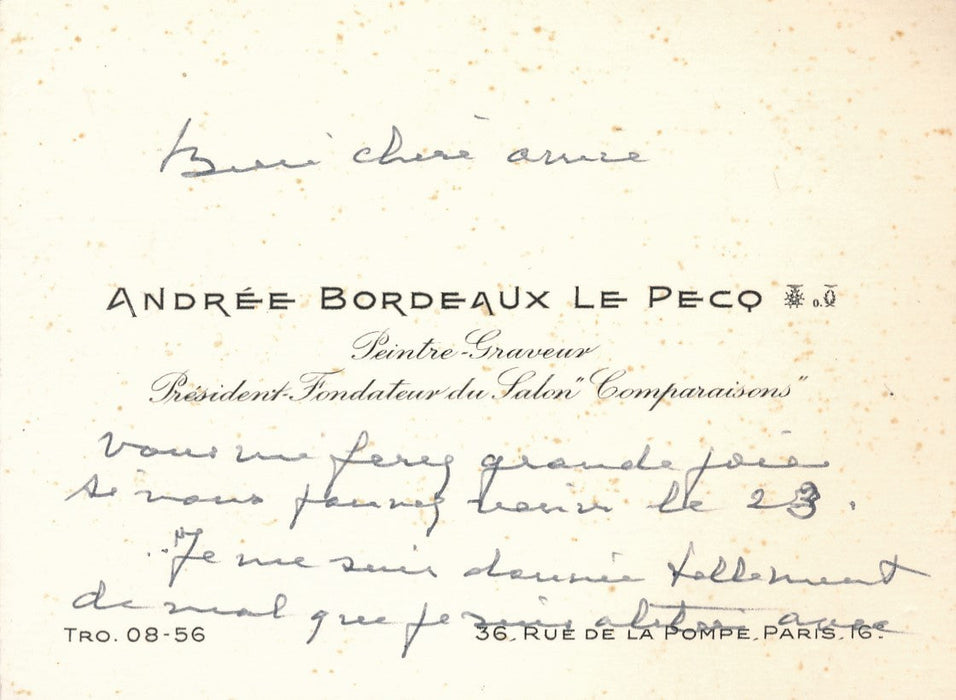 Bien chère amie
ANDRÉE BORDEAUX LE PECQ
Peintre-Graveur
Président-Fondateur du Salon "Comparaisons"
vous me ferez grande joie
si vous pouvez venir le 23.
Je me suis donnée tellement
de mal que je suis alitée avec
TRO. 08-56
36, RUE DE LA POMPE, PARIS. 16e.